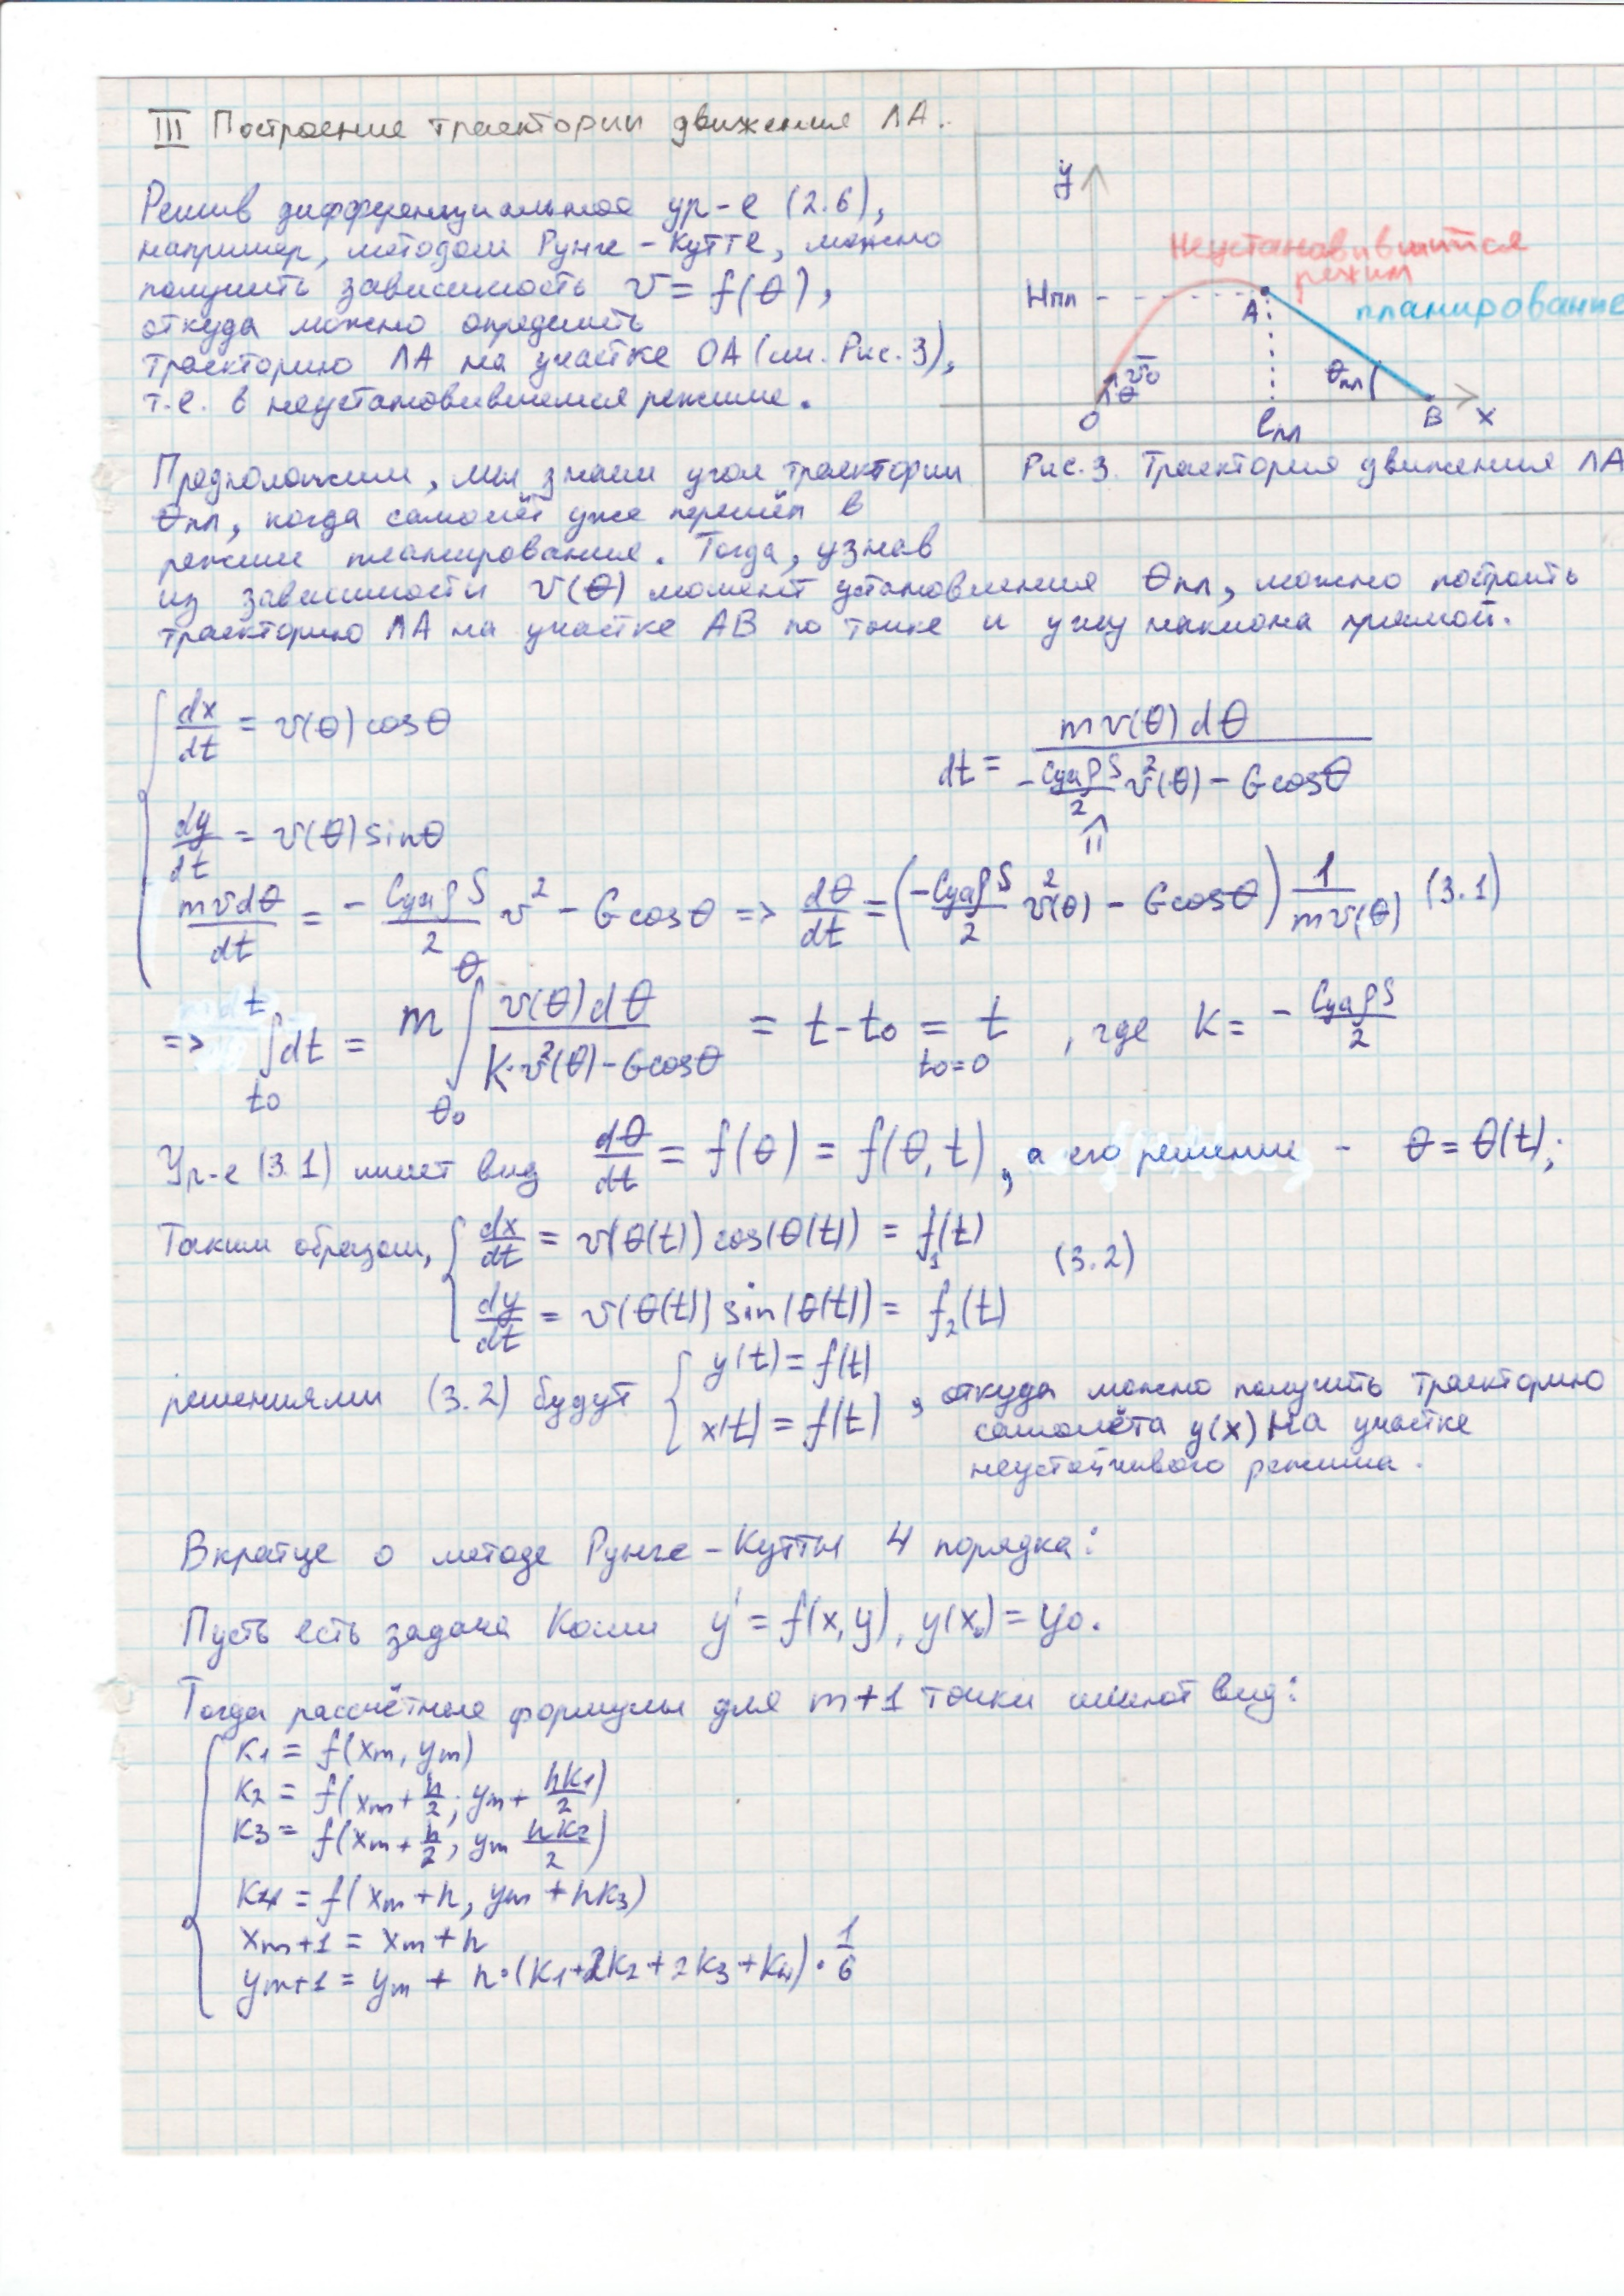 III Построение траектории движения ЛА.
Решив дифференциальное ур-е (2.6),
например, методом Рунге-Кутте, можно
получить зависимость v = f(θ),
откуда можно определить
траекторию ЛА на участке ОА (см. Рис. 3),
т.е. в неустановившемся режиме.
y
Неустановившийся
режим
Hпл
A
планирование
v̄₀
θ
θпл
O
lпл
B
x
Рис. 3. Траектория движения ЛА
Предположим, мы знаем угол траектории
θпл, когда самолёт уже перешёл в
режим планирования. Тогда, узнав
из зависимости v(θ) момент установления θпл, можно построить
траекторию ЛА на участке АВ по точке и углу наклона прямой.
dx/dt = v(θ) cosθ
dy/dt = v(θ) sinθ
dt = mv(θ)dθ / (-CyaρS/2 v²(θ) - G cosθ)
mvdθ/dt = - CyaρS/2 v² - G cosθ => dθ/dt = (-CyaρS/2 v²(θ) - G cosθ) 1/mv(θ) (3.1)
=> ∫_{t₀}^{t} dt = m ∫_{θ₀}^{θ} v(θ)dθ / (K·v²(θ) - G cosθ) = t - t₀ = t , где K = - CyaρS/2
t₀=0
Ур-е (3.1) имеет вид dθ/dt = f(θ) = f(θ, t), а его решение - θ = θ(t);
Таким образом, { dx/dt = v(θ(t)) cos(θ(t)) = f₁(t)
(3.2)
dy/dt = v(θ(t)) sin(θ(t)) = f₂(t)
решениями (3.2) будут { y(t) = f(t)
x(t) = f(t)
, откуда можно получить траекторию
самолёта y(x) на участке
неустойчивого режима.
Вкратце о методе Рунге-Кутты 4 порядка:
Пусть есть задача Коши y' = f(x, y), y(x₀) = y₀.
Тогда рассчётные формулы для m+1 точки имеют вид:
K₁ = f(xm, ym)
K₂ = f(xm + h/2; ym + hK₁/2)
K₃ = f(xm + h/2; ym hK₂/2)
K₄ = f(xm + h, ym + hK₃)
xm+1 = xm + h
ym+1 = ym + h·(K₁ + 2K₂ + 2K₃ + K₄)·1/6